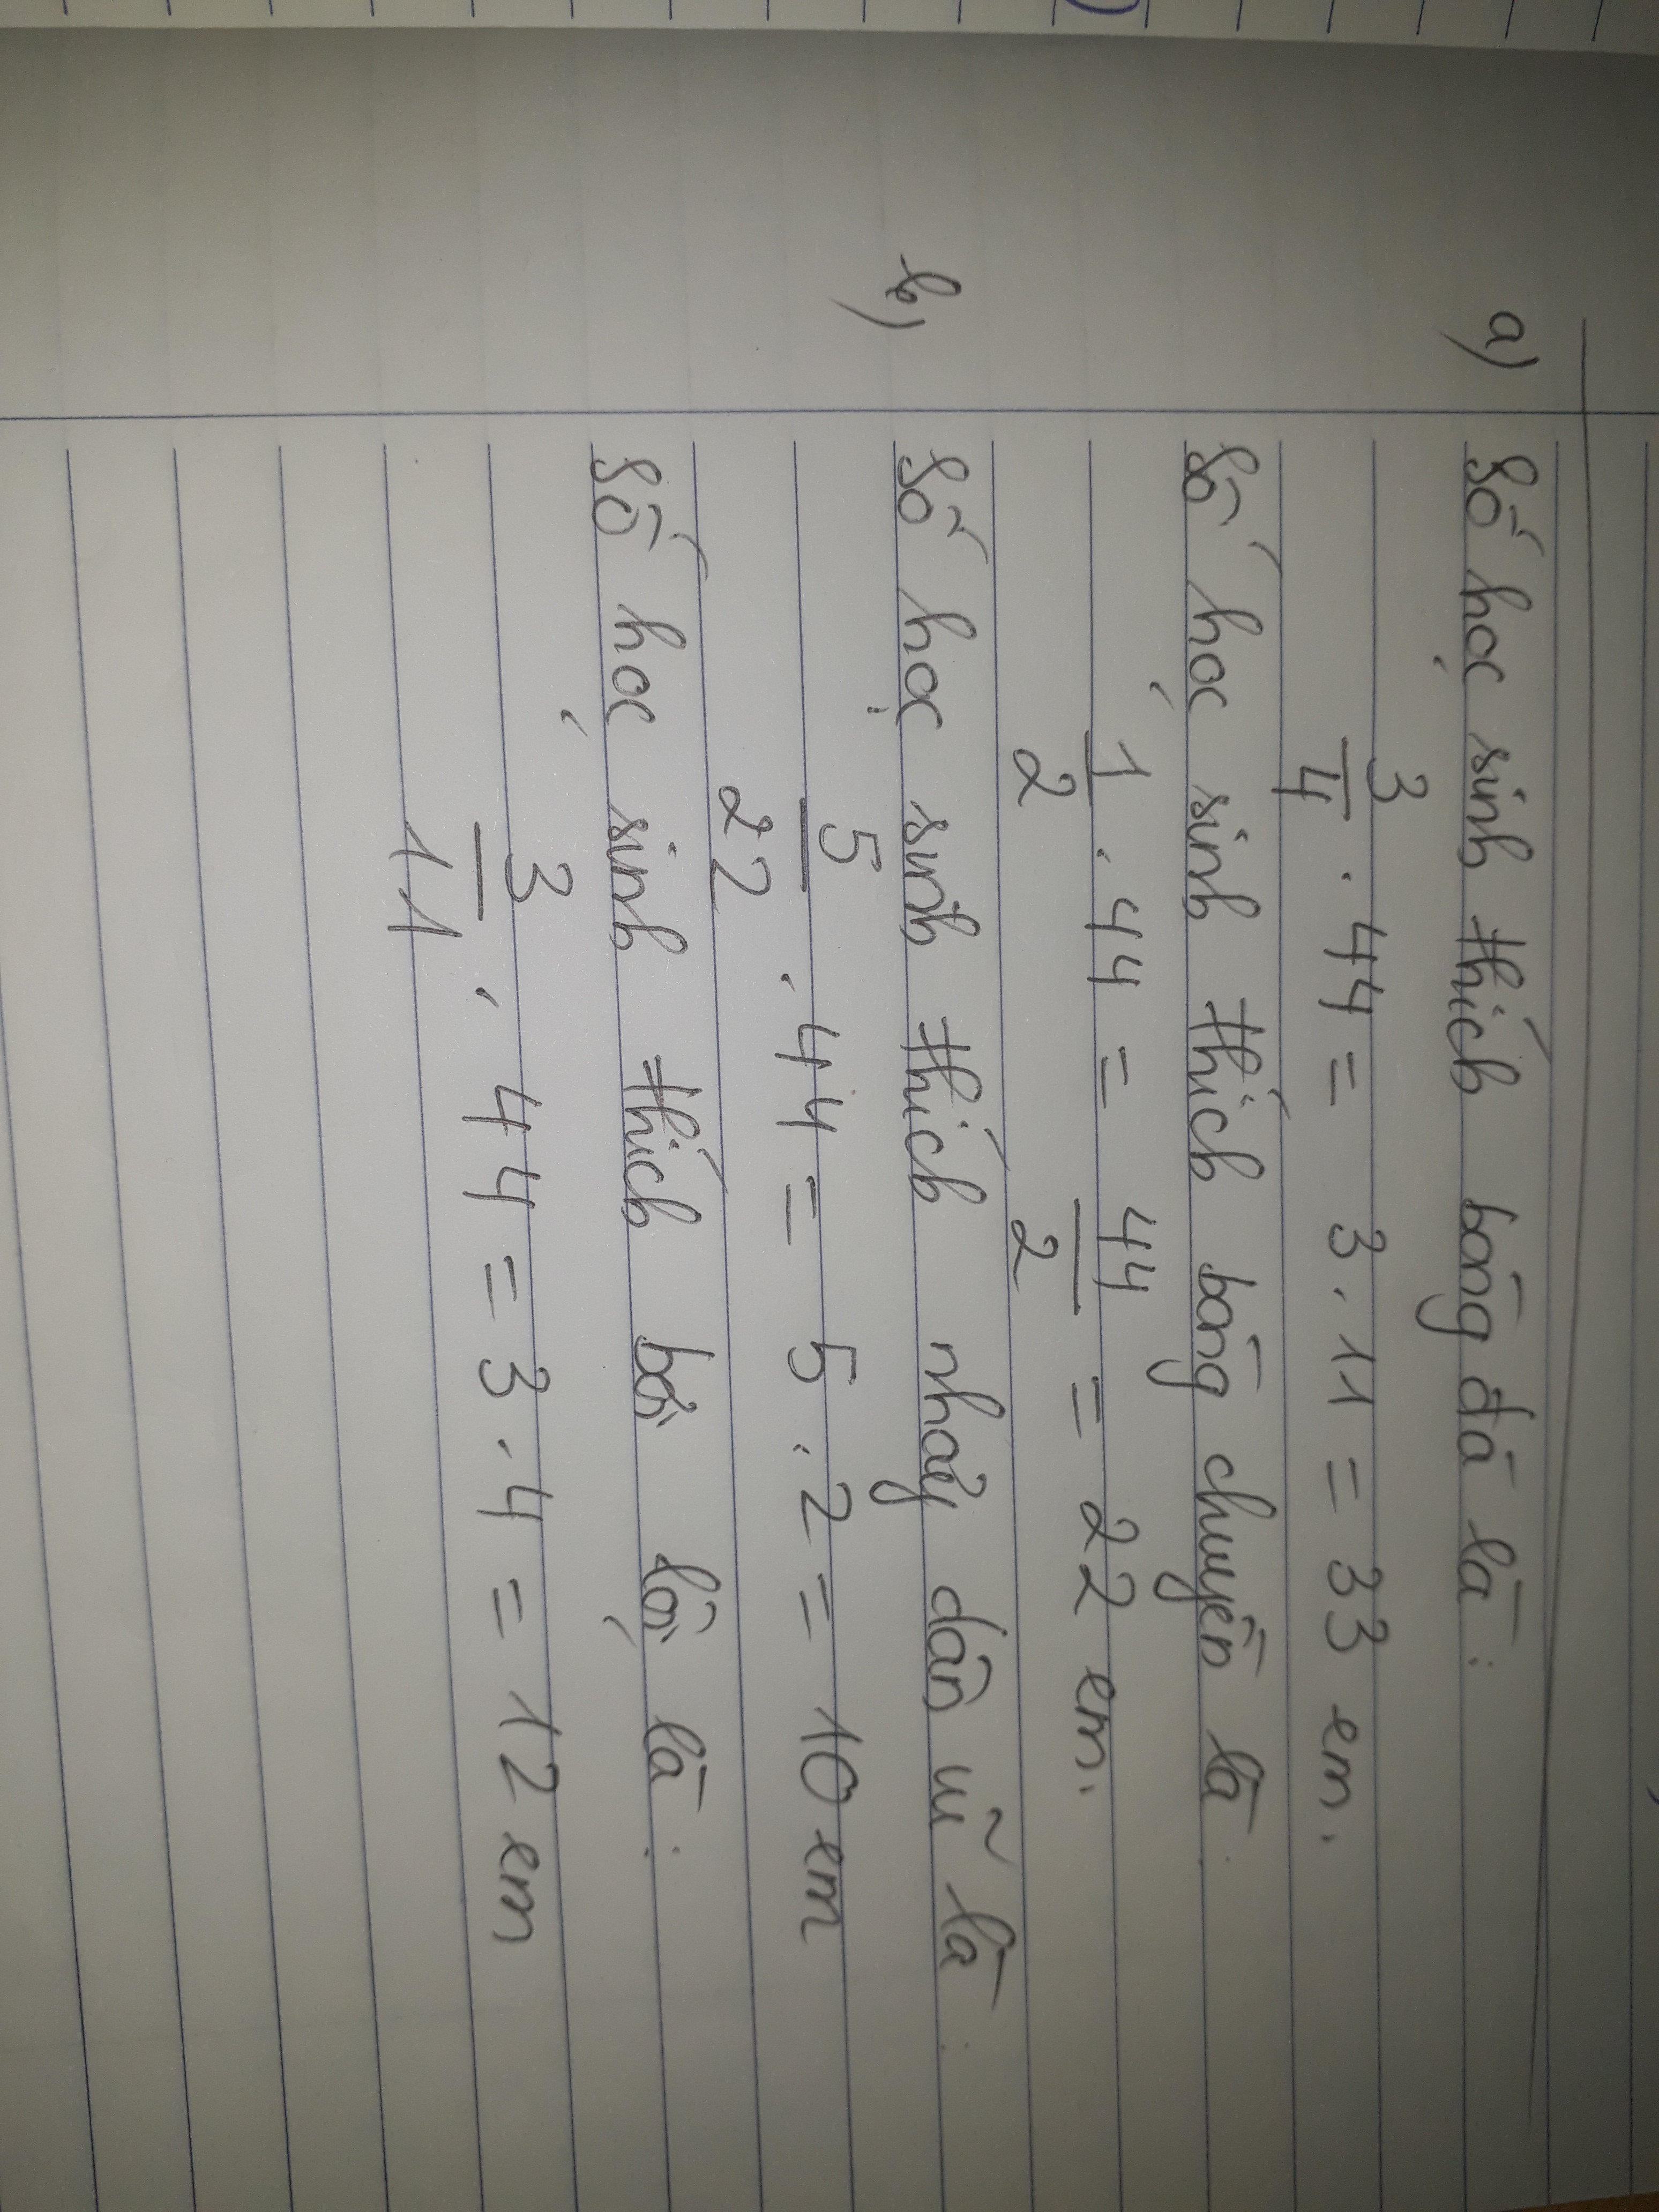 a) Số học sinh thích bóng đá là:
3/4 . 44 = 3 . 11 = 33 em.
Số học sinh thích bóng chuyền là
1/2 . 44 = 44/2 = 22 em.
b) Số học sinh thích nhảy dân vũ là
5/22 . 44 = 5 . 2 = 10 em
Số học sinh thích bơi lội là:
3/11 . 44 = 3 . 4 = 12 em